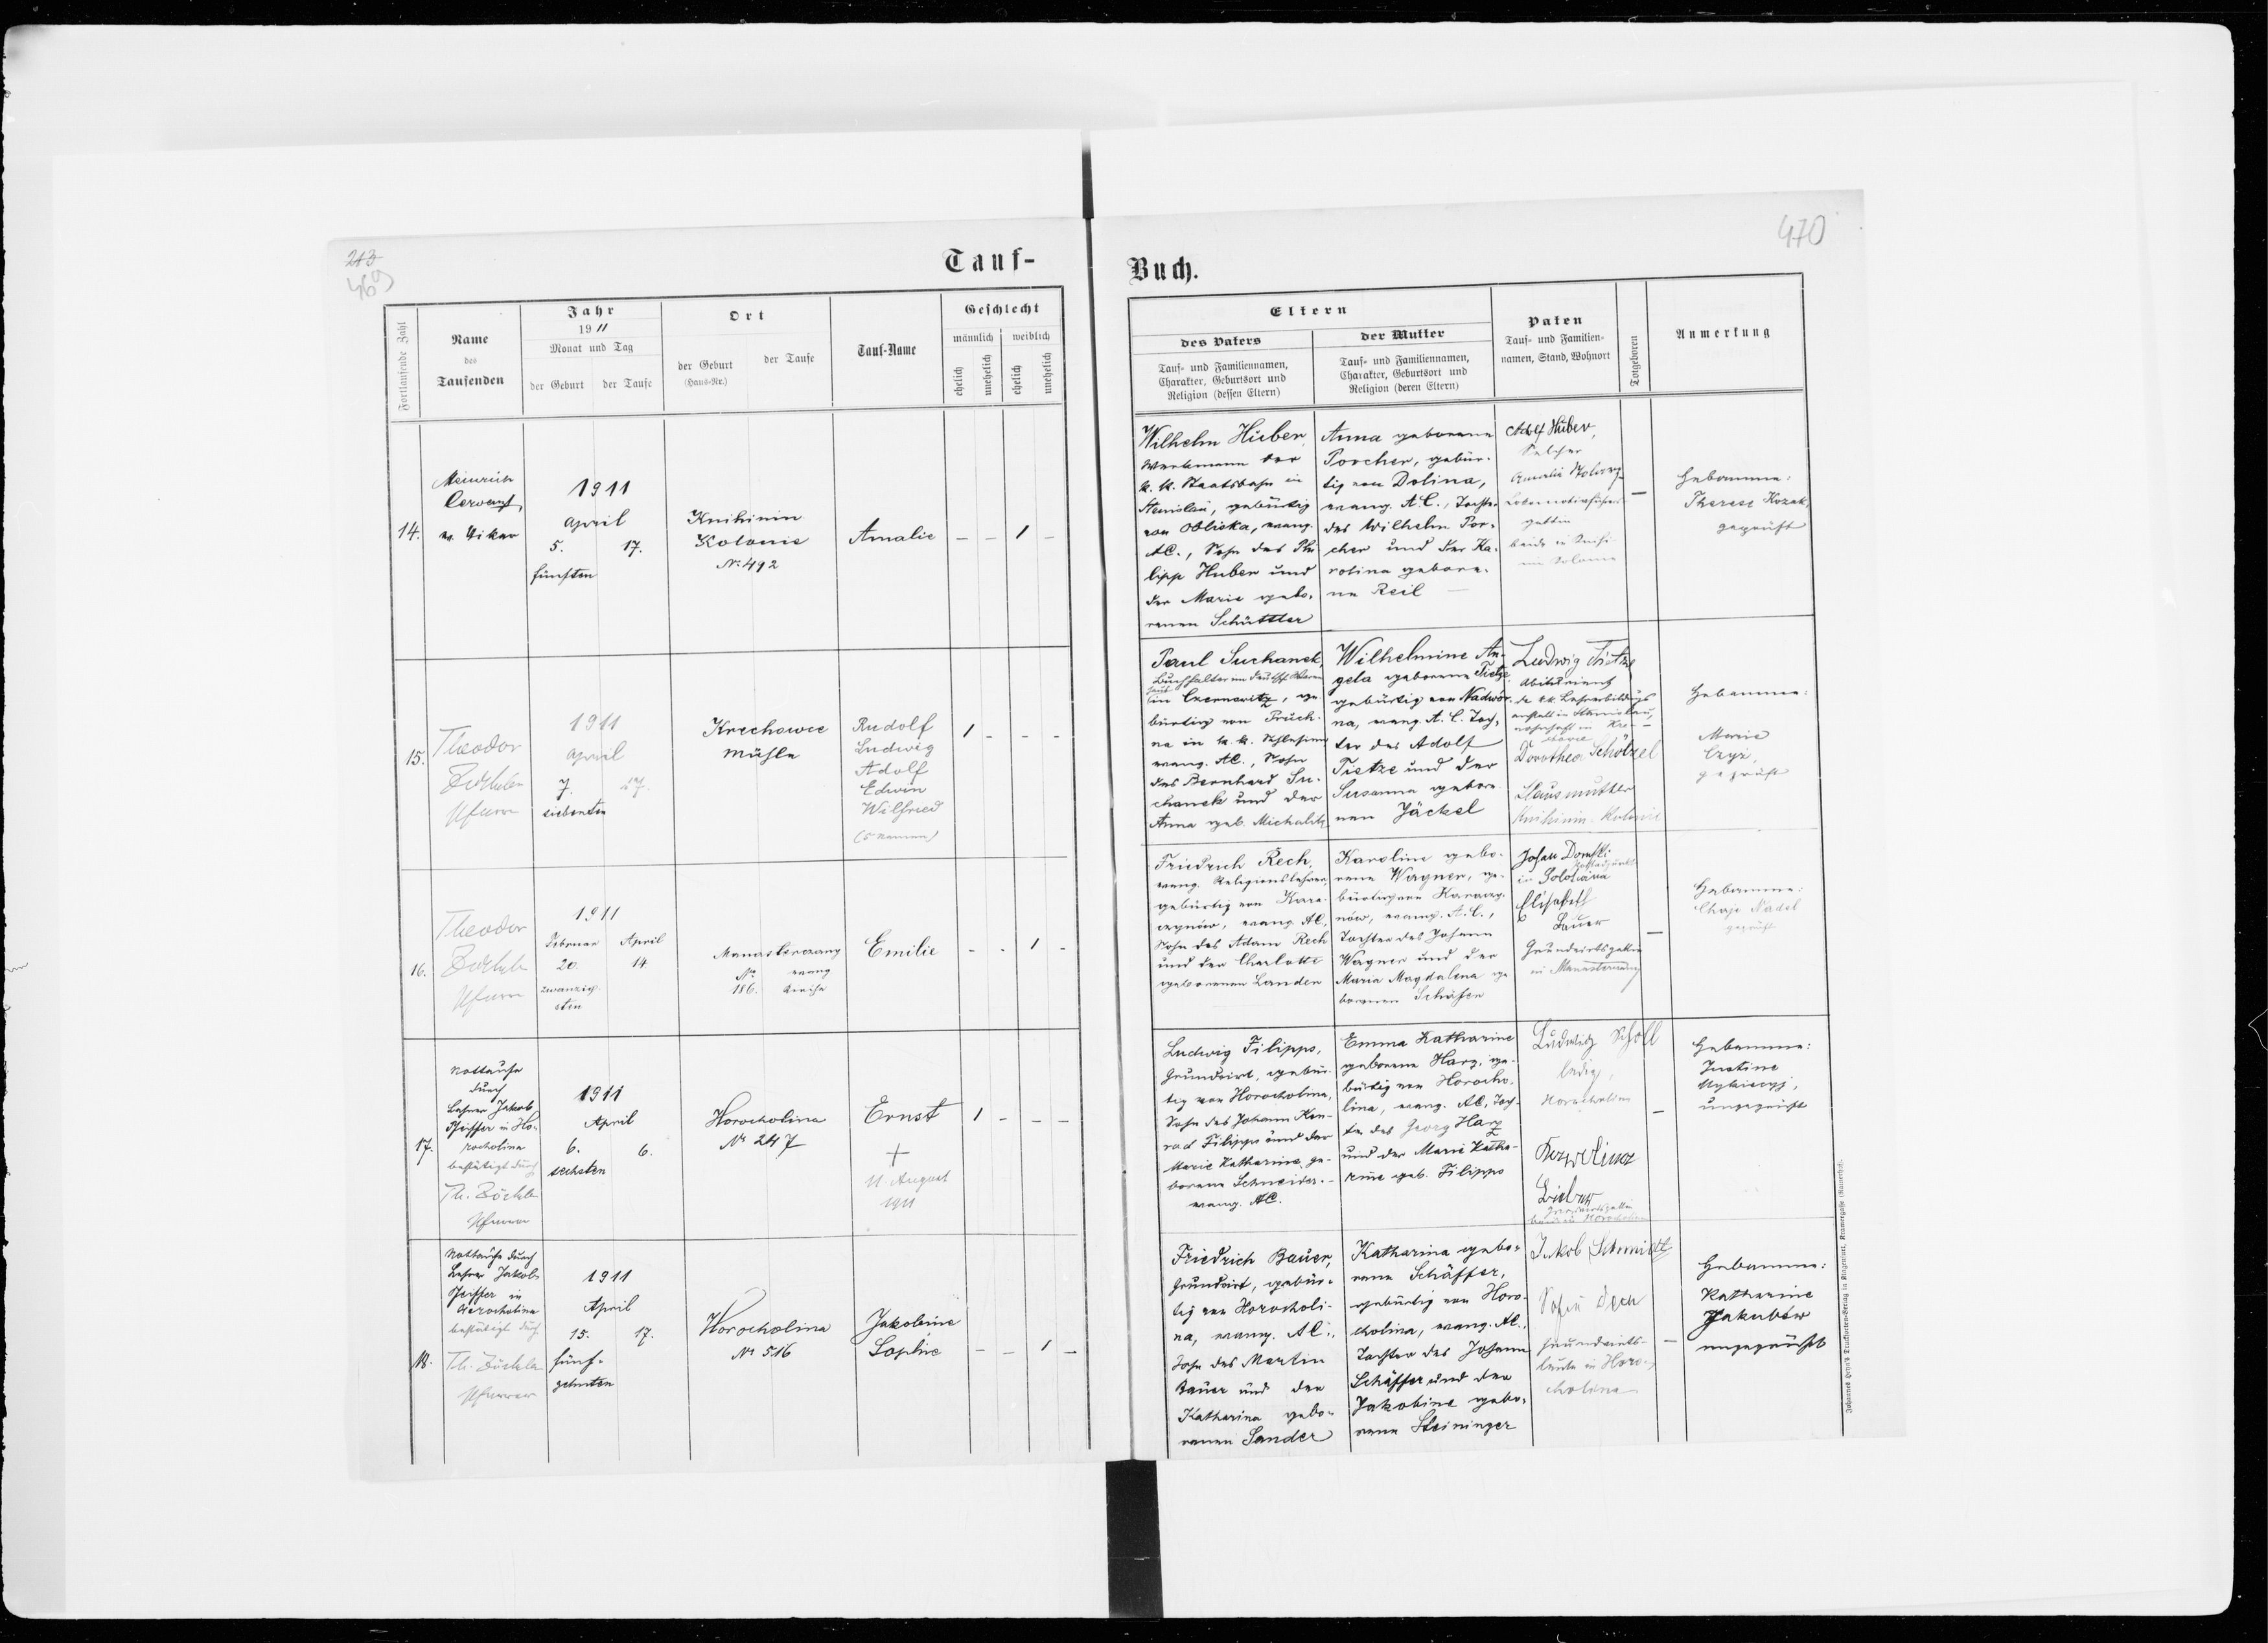 213
469
470
Tauf-
Buch.
Fortlaufende Zahl
Name
des
Taufenden
Jahr
1911
Monat und Tag
der Geburt
der Taufe
Ort
der Geburt
(Haus-Nr.)
der Taufe
Tauf-Name
Geschlecht
männlich
weiblich
ehelich
unehelich
ehelich
unehelich
Eltern
des Vaters
Tauf- und Familiennamen,
Charakter, Geburtsort und
Religion (dessen Eltern)
der Mutter
Tauf- und Familiennamen,
Charakter, Geburtsort und
Religion (deren Eltern)
Paten
Tauf- und Familien-
namen, Stand, Wohnort
Totgeboren
Anmerkung
14.
Heinrich
ev. Vikar
1911
April
5.
17.
fünften
Knihinin
Kolonie
No 492
Amalie
- - 1 -
Wilhelm Huber,
Werkmann der
k. k. Staatsbahn in
Stanislau, gebürtig
von Obliska, evang.
A.C., Sohn des Phi
lipp Huber und
der Marie gebo-
renen Schüttler
Anna geborene
Porcher, gebür-
tig von Dolina,
evang. A.C., Tochter
des Wilhelm Por-
cher und der Ka-
rolina gebore-
nen Reil
Adolf Huber,
Amalie
Lokomotivführers
gattin
-
Hebamme:
Therese Kozak,
geprüft
15.
Theodor
Zöckler
Pfarrer
1911
April
7.
17.
siebenten
Krechowce
Mühle
Rudolf
Ludwig
Adolf
Edwin
Wilfried
(5 Namen)
1 - - -
Paul Suchanek,
Buchhalter im deutschen
in Czernowitz, ge-
bürtig von Pruch-
na in k. k. Schlesien
evang. A.C., Sohn
des Bernhard Su-
chanek und der
Anna geb. Michalik
Wilhelmine An-
gela geborene Tietze
gebürtig von Nadwór-
na, evang. A.C. Toch-
ter des Adolf
Tietze und der
Susanna gebore-
nen Jäckel
Ludwig Tietze
Abiturient
der k.k. Lehrerbildungs
anstalt in Stanislau,
wohnhaft in Kre-
chowce
Dorothea Schölzel
Hausmutter
Knihinin-Kolonie
-
Hebamme:
Marie
geprüft
16.
Theodor
Zöckler
Pfarrer
1911
Februar
April
20.
14.
zwanzig-
sten
Manasterczany
No
186.
evang
Kirche
Emilie
- - 1 -
Friedrich Rech,
evang. Religionslehrer,
gebürtig von Kara-
czynów, evang. A.C.
Sohn des Adam Rech
und der Charlotte
geborenen Lander
Karoline gebo-
rene Wagner, ge-
bürtig von Karaczy-
nów, evang. A.C.,
Tochter des Johann
Wagner und der
Maria Magdalena ge
borenen Schäfer
Johan
in Solotwina
Elisabeth
Bauer
Grundwirtsgattin
in Manasterczany
-
Hebamme:
Chaje Nadel
geprüft
17.
Nottaufe
durch
Lehrer Jakob
Pfeiffer in Ho-
rocholina
bestätigt durch
Th. Zöckler
Pfarrer
1911
April
6.
6.
sechsten
Horocholina
No 247
Ernst
+
11. August
1911
1 - - -
Ludwig Filipps,
Grundwirt, gebür-
tig von Horocholina,
Sohn des Johann Kon-
rad Filipps und der
Marie Katharine ge-
borene Schneider.-
evang. A.C.
Emma Katharine
geborene Harz, ge-
bürtig von Horocho-
lina, evang. A.C., Toch-
ter des Georg Harz
und der Marie Katha-
rine geb. Filipps
Ludwig Scholl
ledig,
Horocholina
Grundwirtsgattin
beide in Horocholina
-
Hebamme:
Justine
ungeprüft
18.
Nottaufe durch
Lehrer Jakob
Pfeiffer in
Horocholina
bestätigt durch
Th. Zöckler
Pfarrer
1911
April
15.
17.
fünf-
zehnten
Horocholina
No 516
Jakobine
Sophie
- - 1 -
Friedrich Bauer,
Grundwirt, gebür-
tig von Horocholi-
na, evang. A.C.,
Sohn des Martin
Bauer und der
Katharina gebo-
renen Sander
Katharina gebo-
rene Schäffer,
gebürtig von Horo-
cholina, evang. A.C.,
Tochter des Johann
Schäffer und der
Jakobine gebo-
rene Steininger
Jakob Schmidt
Sofia Dech
Grundwirts-
leute in Horo-
cholina
-
Hebamme:
Katharine
Jakubów
ungeprüft